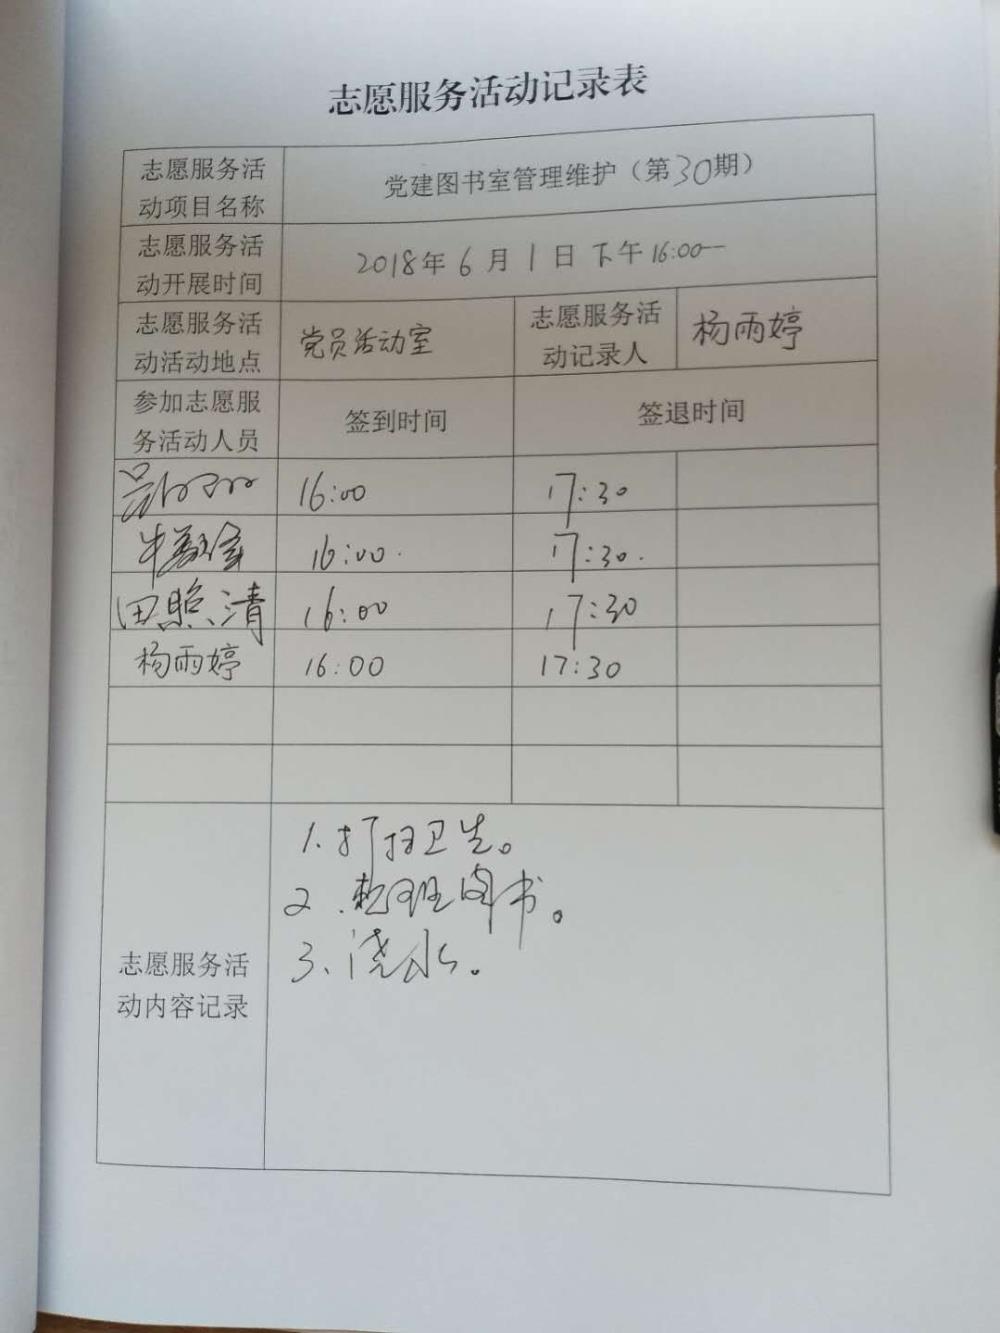 志愿服务活动记录表
志愿服务活
动项目名称
党建图书室管理维护（第30期）
志愿服务活
动开展时间
2018年6月1日下午16:00—
志愿服务活
动活动地点
党员活动室
志愿服务活
动记录人
杨雨婷
参加志愿服
务活动人员
签到时间
签退时间
16:00
17:30
16:00.
17:30.
田照清
16:00
17:30
杨雨婷
16:00
17:30
志愿服务活
动内容记录
1.打扫卫生。
2.整理图书。
3、浇水。